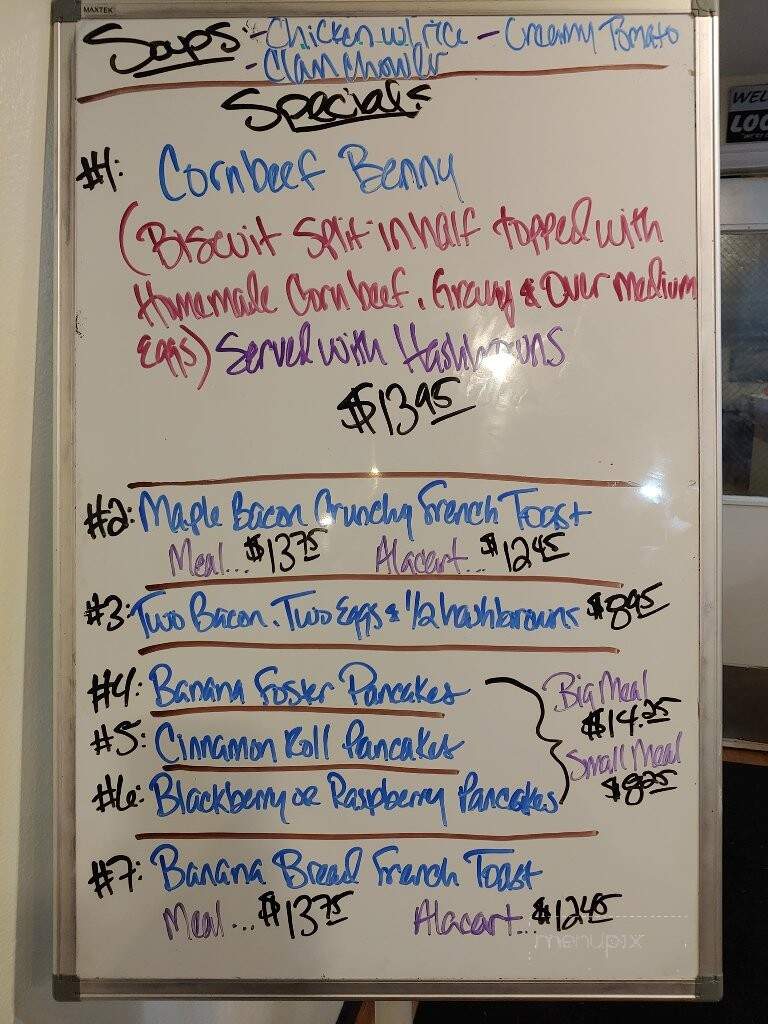 MAXTEK
Soups: - Chicken w/ rice - Creamy Tomato
- Clam Chowder
Specials
#1: Cornbeef Benny
(Biscuit Split in half topped with
Homemade Cornbeef, Gravy & Over Medium
Eggs) Served with Hashbrowns
$13.95
#2: Maple Bacon Crunchy French Toast
Meal... $13.75 Alacart... $12.45
#3: Two Bacon, Two Eggs & 1/2 hashbrowns $8.95
#4: Banana Foster Pancakes
Big Meal
$14.25
#5: Cinnamon Roll Pancakes
Small Meal
$8.25
#6: Blackberry or Raspberry Pancakes
#7: Banana Bread French Toast
Meal... $13.75 Alacart... $12.45
menupix
WEL
LOC